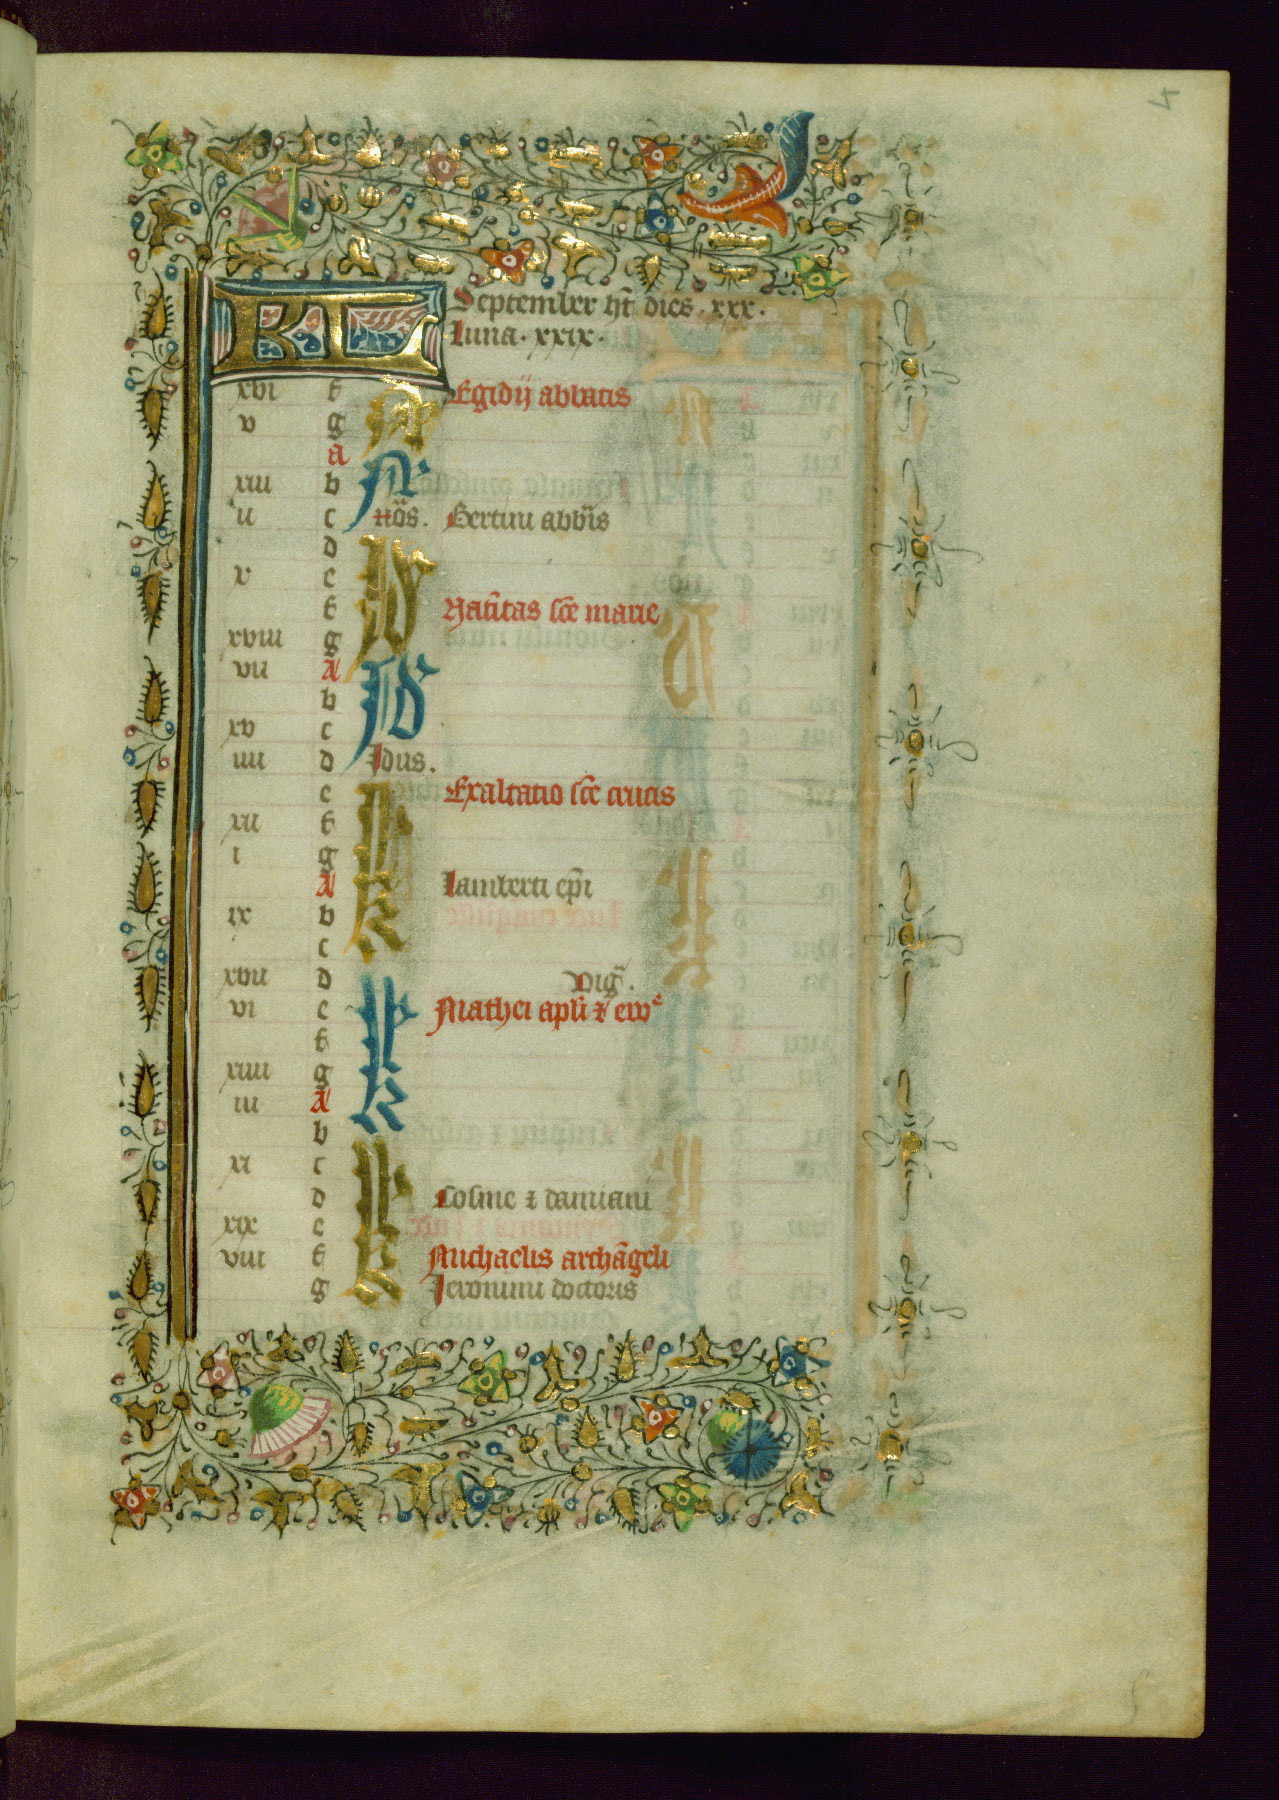 KL September ht dies · xxx ·
luna · xxix ·
xvi f N Egidij abbatis
v g
a
xiii b Nº
ii c nōs. Bertini abb̄is
d Id
v e
f Natītas sc̄e marie
xviii g
vii a Idº
b
xv c
iiii d Idus.
e kl Exaltatio sc̄e crucis
xii f
i g
a k Lamberti ep̄i
ix b
c
xvii d kl viḡ.
vi e Mathei apl̄i ⁊ ewᵉ
f
xiiii g
iii a k
b kl
xi c
d Cosme ⁊ damiani
xix e
viii f k Michaelis archāgeli
g Jeronimi doctoris